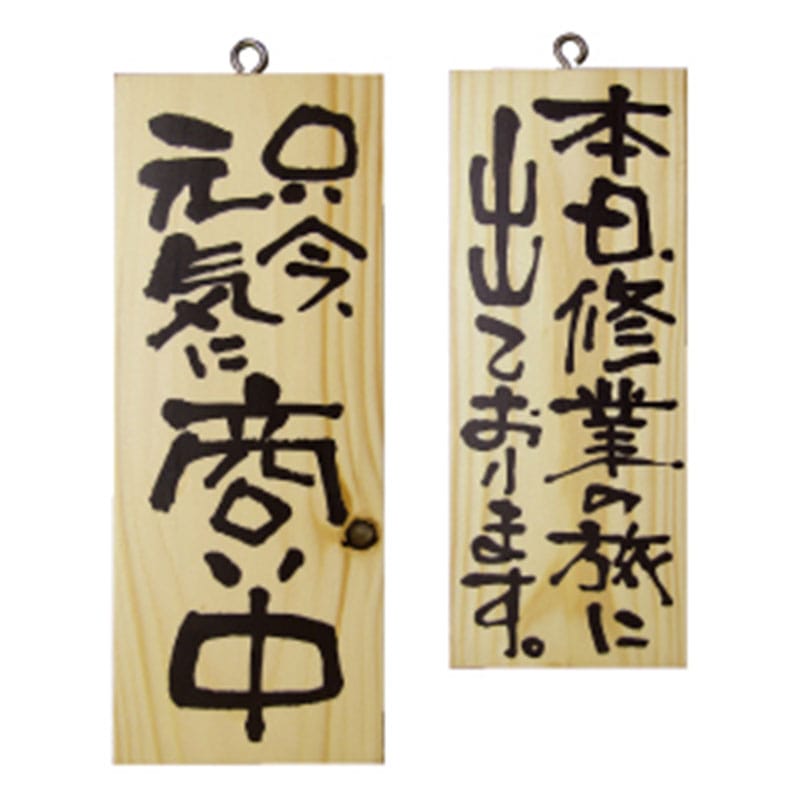 只今、
元気に
商い中
本日、修業の旅に
出ております。